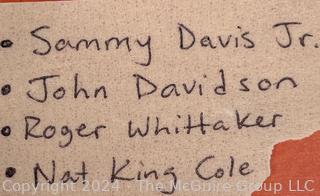 • Sammy Davis Jr.
• John Davidson
• Roger Whittaker
• Nat King Cole
Copyright 2024 - The McGuire Group LLC